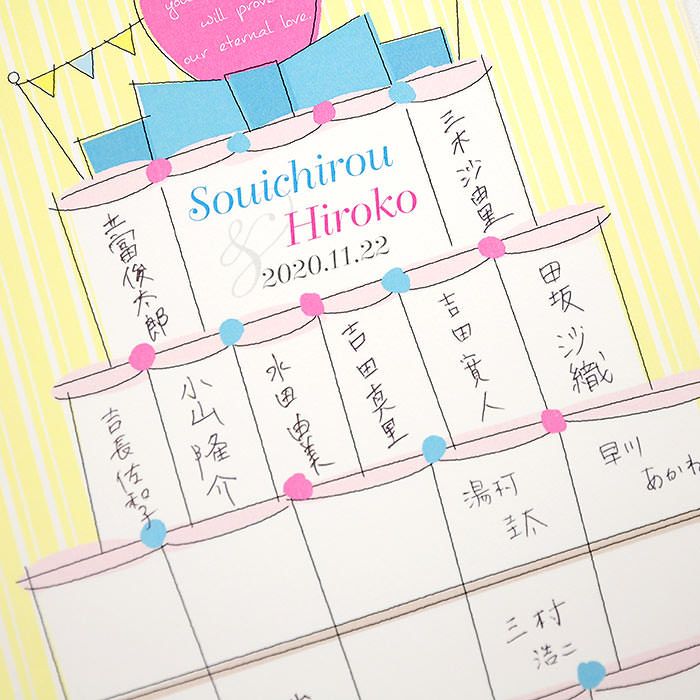 will prove
our eternal love.
Souichirou
&
Hiroko
2020.11.22
三木沙由里
富俊太郎
田坂沙織
吉田実人
吉田真里
水田由美
小山隆介
吉長佐和子
早川
あかね
湯村
圭太
三村
浩二